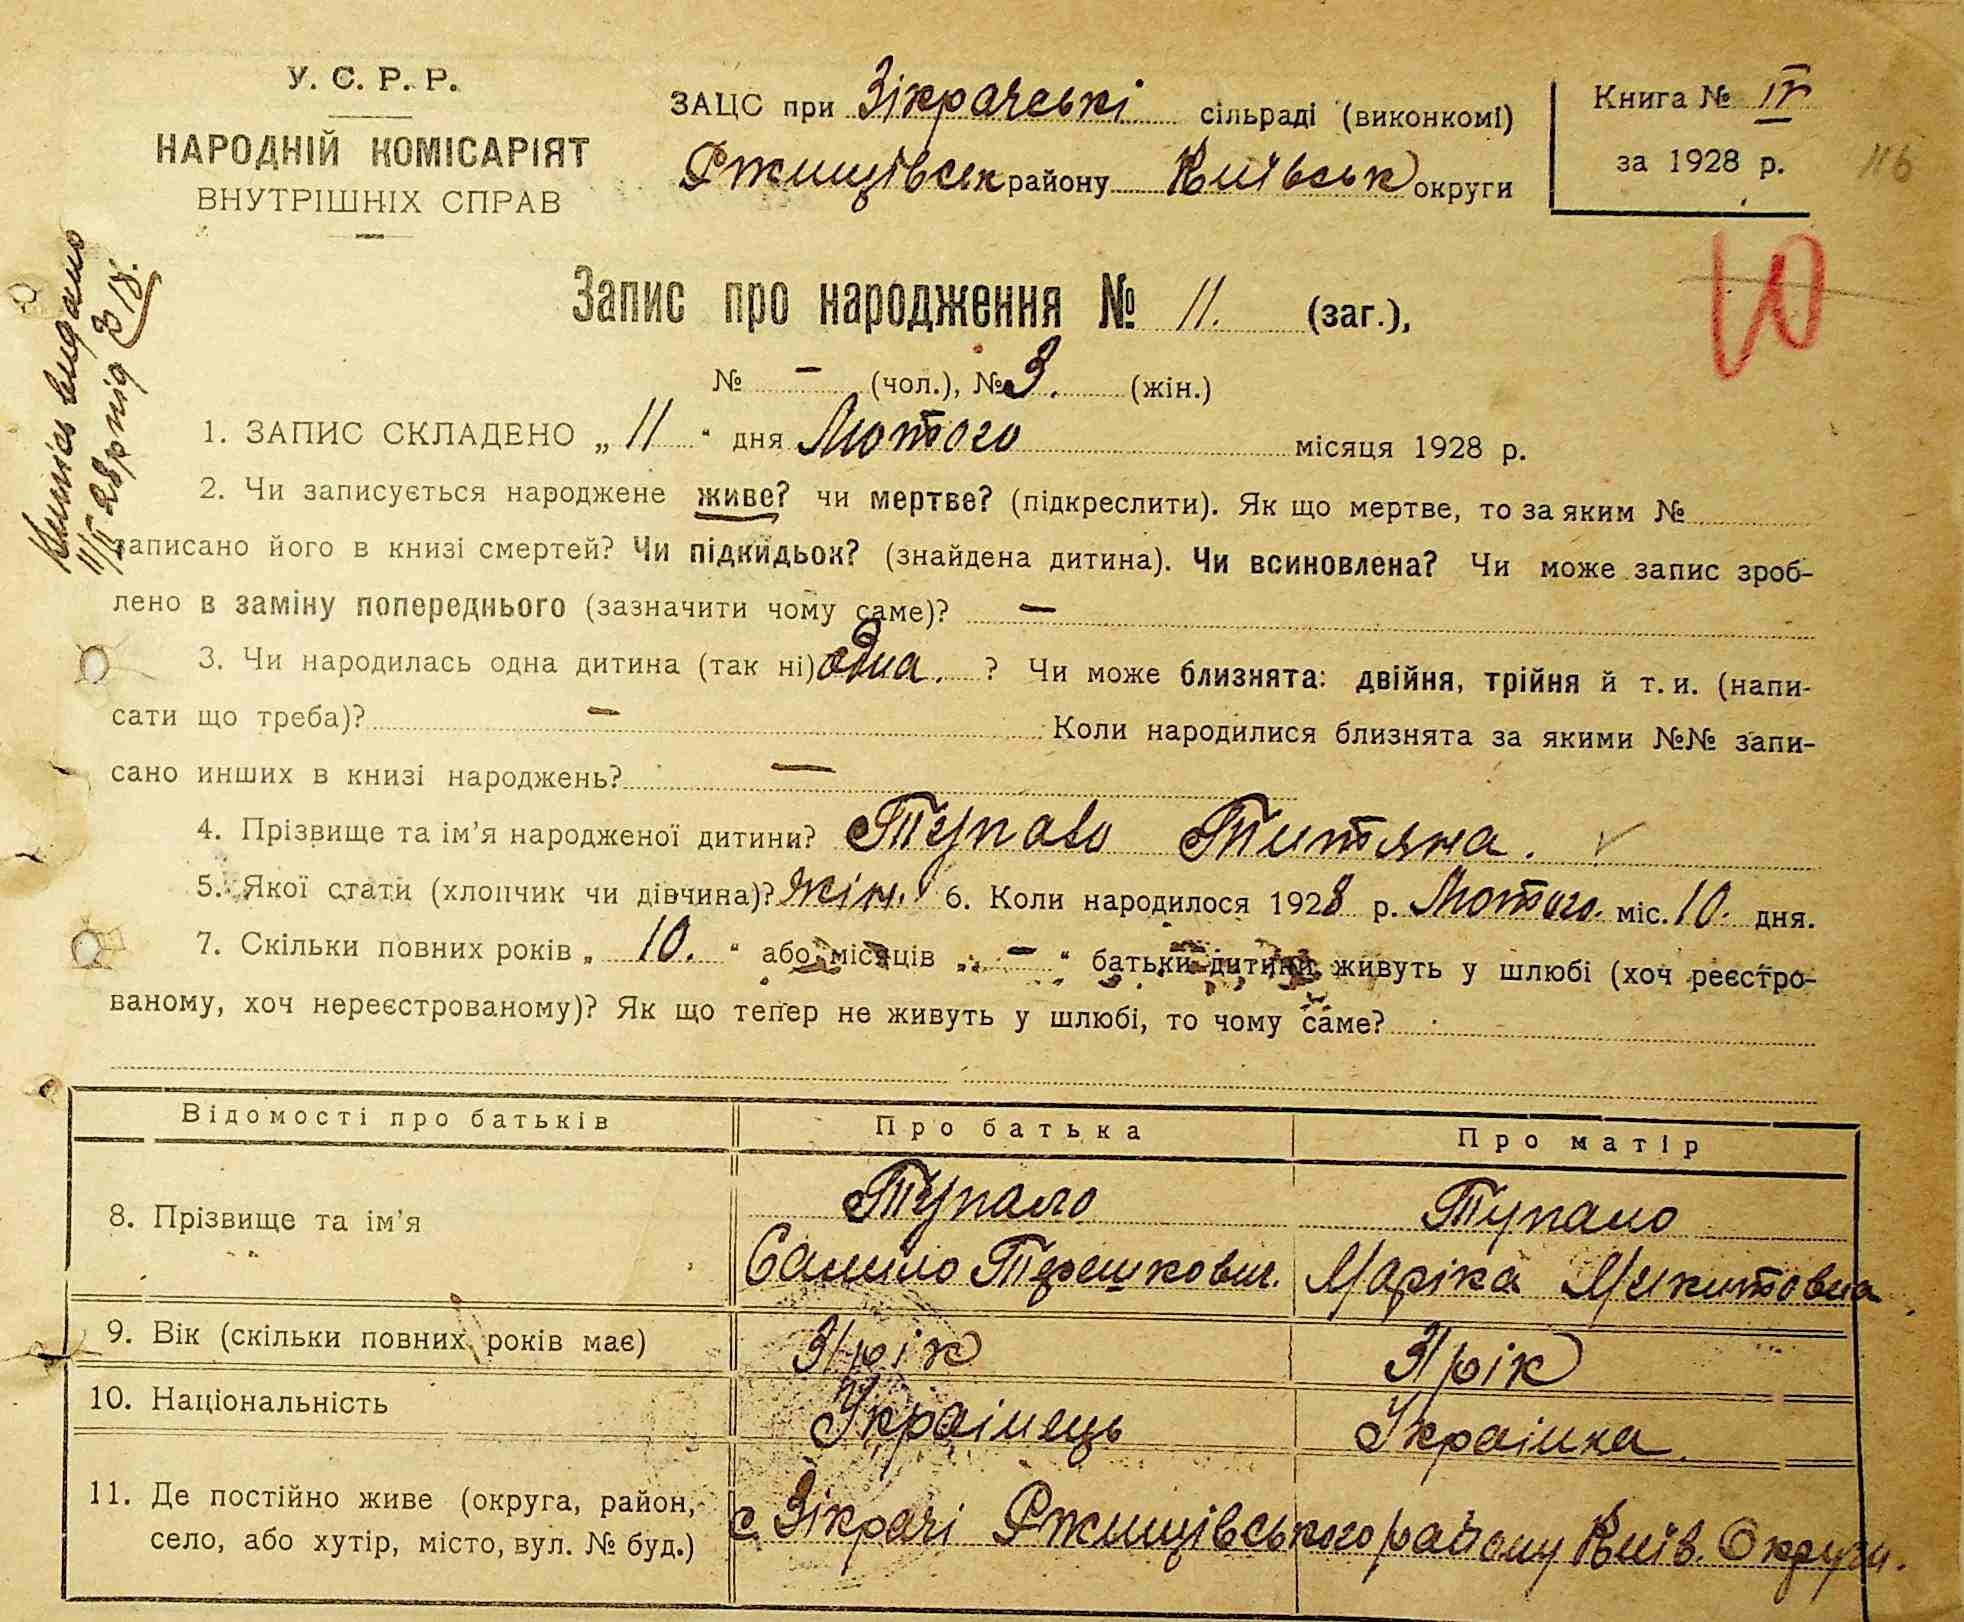 У. С. Р. Р.
НАРОДНІЙ КОМІСАРІЯТ
ВНУТРІШНІХ СПРАВ
ЗАЦС при Зікрачські сільраді (виконкомі)
Ржищівськ району Київськ округи
Книга № IV
за 1928 р.
116
10
видано
11/II 28р під 318.
Запис про народження № 11. (заг.),
№ — (чол.), № 3. (жін.)
1. ЗАПИС СКЛАДЕНО „ 11 “ дня Лютого місяця 1928 р.
2. Чи записується народжене живе? чи мертве? (підкреслити). Як що мертве, то за яким №
записано його в книзі смертей? Чи підкидьок? (знайдена дитина). Чи всиновлена? Чи може запис зроб-
лено в заміну попереднього (зазначити чому саме)? —
3. Чи народилась одна дитина (так ні) одна. ? Чи може близнята: двійня, трійня й т. и. (напи-
сати що треба)? — Коли народилися близнята за якими №№ запи-
сано инших в книзі народжень? —
4. Прізвище та ім’я народженої дитини? Тупало Титяна.
5. Якої стати (хлопчик чи дівчина)? жін. 6. Коли народилося 1928 р. Лютого. міс. 10. дня.
7. Скільки повних років „ 10. “ або місяців „ — “ батьки дитини живуть у шлюбі (хоч реєстро-
ваному, хоч нереєстрованому)? Як що тепер не живуть у шлюбі, то чому саме?
Відомості про батьків Про батька Про матір
8. Прізвище та ім’я Тупало Тупало
Самило Терешкович. Маріка Микитовна
9. Вік (скільки повних років має) 31 рік 31 рік
10. Національність Українець Українка.
11. Де постійно живе (округа, район,
село, або хутір, місто, вул. № буд.) с. Зікрачі Ржищівського району Київ. Округи.